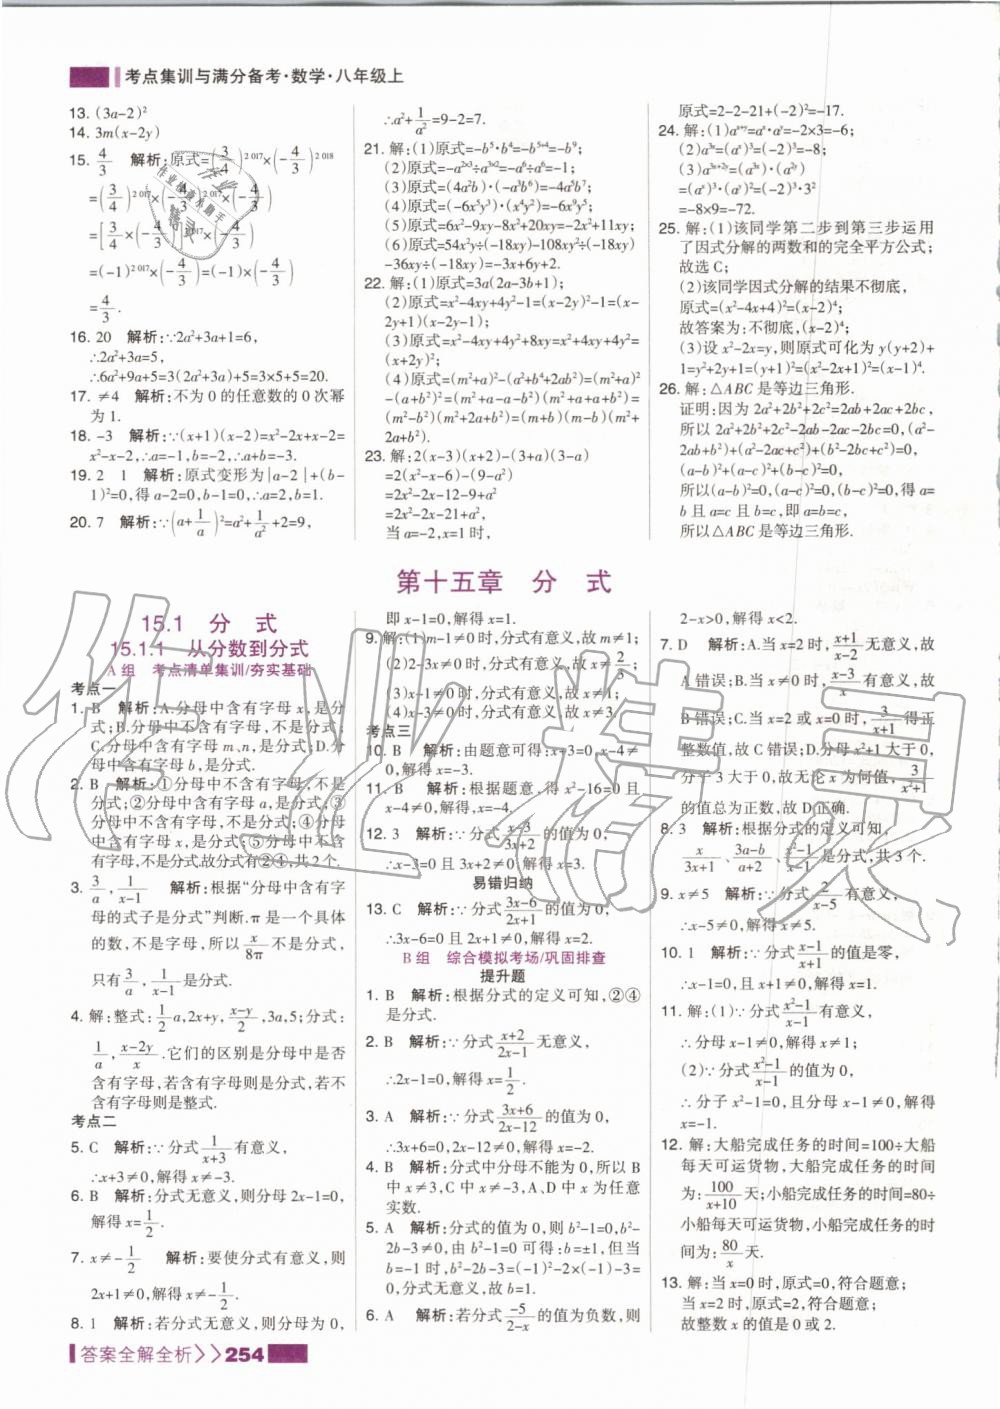 考点集训与满分备考·数学·八年级上
13. (3a-2)²
14. 3m(x-2y)
15. 4/3 解析:原式=(3/4)^2017×(-4/3)^2018
=(3/4)^2017×(-4/3)^2017×(-4/3)
=[3/4×(-4/3)]^2017×(-4/3)
=(-1)^2017×(-4/3)=(-1)×(-4/3)
=4/3.
16. 20 解析:∵2a²+3a+1=6,
∴2a²+3a=5,
∴6a²+9a+5=3(2a²+3a)+5=3×5+5=20.
17. ≠4 解析:不为0的任意数的0次幂
为1.
18. -3 解析:∵(x+1)(x-2)=x²-2x+x-2=
x²-x-2,∴a=-1,b=-2,∴a+b=-3.
19. 2 1 解析:原式变形为|a-2|+(b-
1)²=0,得a-2=0,b-1=0,∴a=2,b=1.
20. 7 解析:∵(a+1/a)²=a²+1/a²+2=9,
∴a²+1/a²=9-2=7.
21. 解:(1)原式=-b⁵·b⁴=-b⁵⁺⁴=-b⁹;
(2)原式=-a^(2×3)÷a^(3×2)=-a⁶÷a⁶=-1;
(3)原式=(4a²b)·(-a³b⁶)=-4a⁵b⁷;
(4)原式=(-6x⁴y³)·(x⁴y²)=-6x⁸y⁵;
(5)原式=6x²-9xy-8x²+20xy=-2x²+11xy;
(6)原式=54x²y÷(-18xy)-108xy²÷(-18xy)
-36xy÷(-18xy)=-3x+6y+2.
22. 解:(1)原式=3a(2a-3b+1);
(2)原式=x²-4xy+4y²-1=(x-2y)²-1=(x-
2y+1)(x-2y-1);
(3)原式=x²-4xy+4y²+8xy=x²+4xy+4y²=
(x+2y)²;
(4)原式=(m²+a)²-(a²+b⁴+2ab²)=(m²+a)²
-(a+b²)²=(m²+a-a-b²)(m²+a+a+b²)=
(m²-b²)(m²+2a+b²)=(m+b)(m-b)(m²+
2a+b²).
23. 解:2(x-3)(x+2)-(3+a)(3-a)
=2(x²-x-6)-(9-a²)
=2x²-2x-12-9+a²
=2x²-2x-21+a²,
当a=-2,x=1时,
原式=2-2-21+(-2)²=-17.
24. 解:(1)a^(x+y)=a^x·a^y=-2×3=-6;
(2)a^(3x)=(a^x)³=(-2)³=-8;
(3)a^(3x+2y)=(a^(3x))·(a^(2y))
=(a^x)³·(a^y)²=(-2)³·3²
=-8×9=-72.
25. 解:(1)该同学第二步到第三步运用
了因式分解的两数和的完全平方公式;
故选C;
(2)该同学因式分解的结果不彻底,
原式=(x²-4x+4)²=(x-2)⁴;
故答案为:不彻底,(x-2)⁴;
(3)设x²-2x=y,则原式可化为y(y+2)+
1=y²+2y+1=(y+1)²=(x²-2x+1)²=(x-1)⁴.
26. 解:△ABC是等边三角形.
证明:因为2a²+2b²+2c²=2ab+2ac+2bc,
所以2a²+2b²+2c²-2ab-2ac-2bc=0,(a²-
2ab+b²)+(a²-2ac+c²)+(b²-2bc+c²)=0,
(a-b)²+(a-c)²+(b-c)²=0,
所以(a-b)²=0,(a-c)²=0,(b-c)²=0,得a=
b且a=c且b=c,即a=b=c,
所以△ABC是等边三角形.
第十五章 分 式
15.1 分 式
15.1.1 从分数到分式
A组 考点清单集训/夯实基础
考点一
1. B 解析:A.分母中含有字母x,是分
式;B.分母中不含有字母,不是分式;
C.分母中含有字母m、n,是分式;D.分
母中含有字母a,是分式.
2. B 解析:①分母中不含有字母,不是
分式;②分母中含有字母a,是分式;③
分母中不含有字母,不是分式;④分母
中含有字母,是分式;⑤分母中不含
有字母,不是分式.故分式有②④,共2个.
3. 3/a, 1/(x-1) 解析:根据“分母中含有字
母的式子是分式”判断.π是一个具体
的数,不是字母,所以x/8π不是分式,
只有3/a, 1/(x-1)是分式.
4. 解:整式:1/2 a,2x+y,(x-y)/2,3a,5;分式:
1/a,(x-2y)/x.它们的区别是分母中是否
含有字母,若含有字母则是分式,若不
含有字母则是整式.
考点二
5. C 解析:∵分式1/(x+3)有意义,
∴x+3≠0,解得x≠-3.
6. B 解析:分式无意义,则分母2x-1=0,
解得x=1/2.
7. x≠-1/2 解析:要使分式有意义,则
2x+1≠0,解得x≠-1/2.
8. 1 解析:若分式无意义,则分母为0,
即x-1=0,解得x=1.
9. 解:(1)m-1≠0时,分式有意义,故m≠1;
(2)2-3x≠0时,分式有意义,故x≠2/3;
(3)x-1≠0时,分式有意义,故x≠1;
(4)x-3≠0时,分式有意义,故x≠3.
考点三
10. B 解析:由题意可得:x+3=0,x-4≠
0,解得x=-3.
11. B 解析:根据题意,得x²-16=0且
x-4≠0,解得x=-4.
12. 3 解析:∵分式(x-3)/(3x+2)的值为0,
∴x-3=0且3x+2≠0,解得x=3.
易错归纳
13. C 解析:∵分式(3x-6)/(2x+1)的值为0,
∴3x-6=0且2x+1≠0,解得x=2.
B组 综合模拟考场/巩固排查
提升题
1. B 解析:根据分式的定义可知,②④
是分式.
2. B 解析:∵分式(x+2)/(2x-1)无意义,
∴2x-1=0,解得x=1/2.
3. A 解析:∵分式(3x+6)/(2x-12)的值为0,
∴3x+6=0,2x-12≠0,解得x=-2.
4. B 解析:分式中分母不能为0,所以B
中x≠3,C中x≠-3,A、D中x为任意
实数.
5. A 解析:分式的值为0,则b²-1=0,b²-
2b-3≠0,由b²-1=0可得:b=±1,但当
b=-1时,b²-2b-3=(-1)²-2×(-1)-3=
0,分式无意义,故b=1.
6. A 解析:若分式-5/(2-x)的值为负数,则
2-x>0,解得x<2.
7. D 解析:A.当x=2时,(x+1)/(x-2)无意义,故
A错误;B.当x≠0时,(x-3)/x有意义,故
B错误;C.当x=2或x=0时,3/(x+1)得正
整数值,故C错误;D.分母x²+1大于0,
分子3大于0,故无论x为何值,3/(x²+1)
的值总为正数,故D正确.
8. 3 解析:根据分式的定义可知,
x/(3x+1)、(3a-b)/(a+2)、(x²-1)/(x-1)是分式,共3个.
9. x≠5 解析:∵分式2/(x-5)有意义,
∴x-5≠0,解得x≠5.
10. 1 解析:∵分式(x-1)/(x+1)的值是零,
∴x-1=0,且x+1≠0,解得x=1.
11. 解:(1)∵分式(x²-1)/(x-1)有意义,
∴分母x-1≠0,解得x≠1;
(2)∵分式(x²-1)/(x-1)=0,
∴分子x²-1=0,且分母x-1≠0,解得
x=-1.
12. 解:大船完成任务的时间=100÷大船
每天可运货物,大船完成任务的时间
为:100/(x+10)天;小船完成任务的时间=80÷
小船每天可运货物,小船完成任务的时
间为:80/x天.
13. 解:当x=0时,原式=0,符合题意;
当x=2时,原式=2,符合题意;
故整数x的值是0或2.
答案全解全析>>254
作业精灵